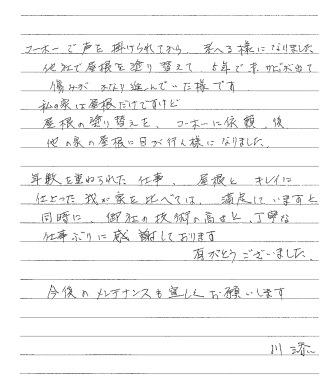 コーホーで声を掛けられてから、考へる様になりました
他社で屋根を塗り替えて、5年で赤サビが出て
傷みがかなり進んでいた様です
私の家は屋根だけですけど
屋根の塗り替えを、コーホーに依頼、後
他の家の屋根に目が行く様になりました。
年数を重ねられた仕事、屋根とキレイに
仕上った我が家を比べては、満足していますと
同時に、御社の技術の高さと、丁寧な
仕事ぶりに感謝しております
有がとうございました、
今後のメンテナンスも宜しくお願いします
川添